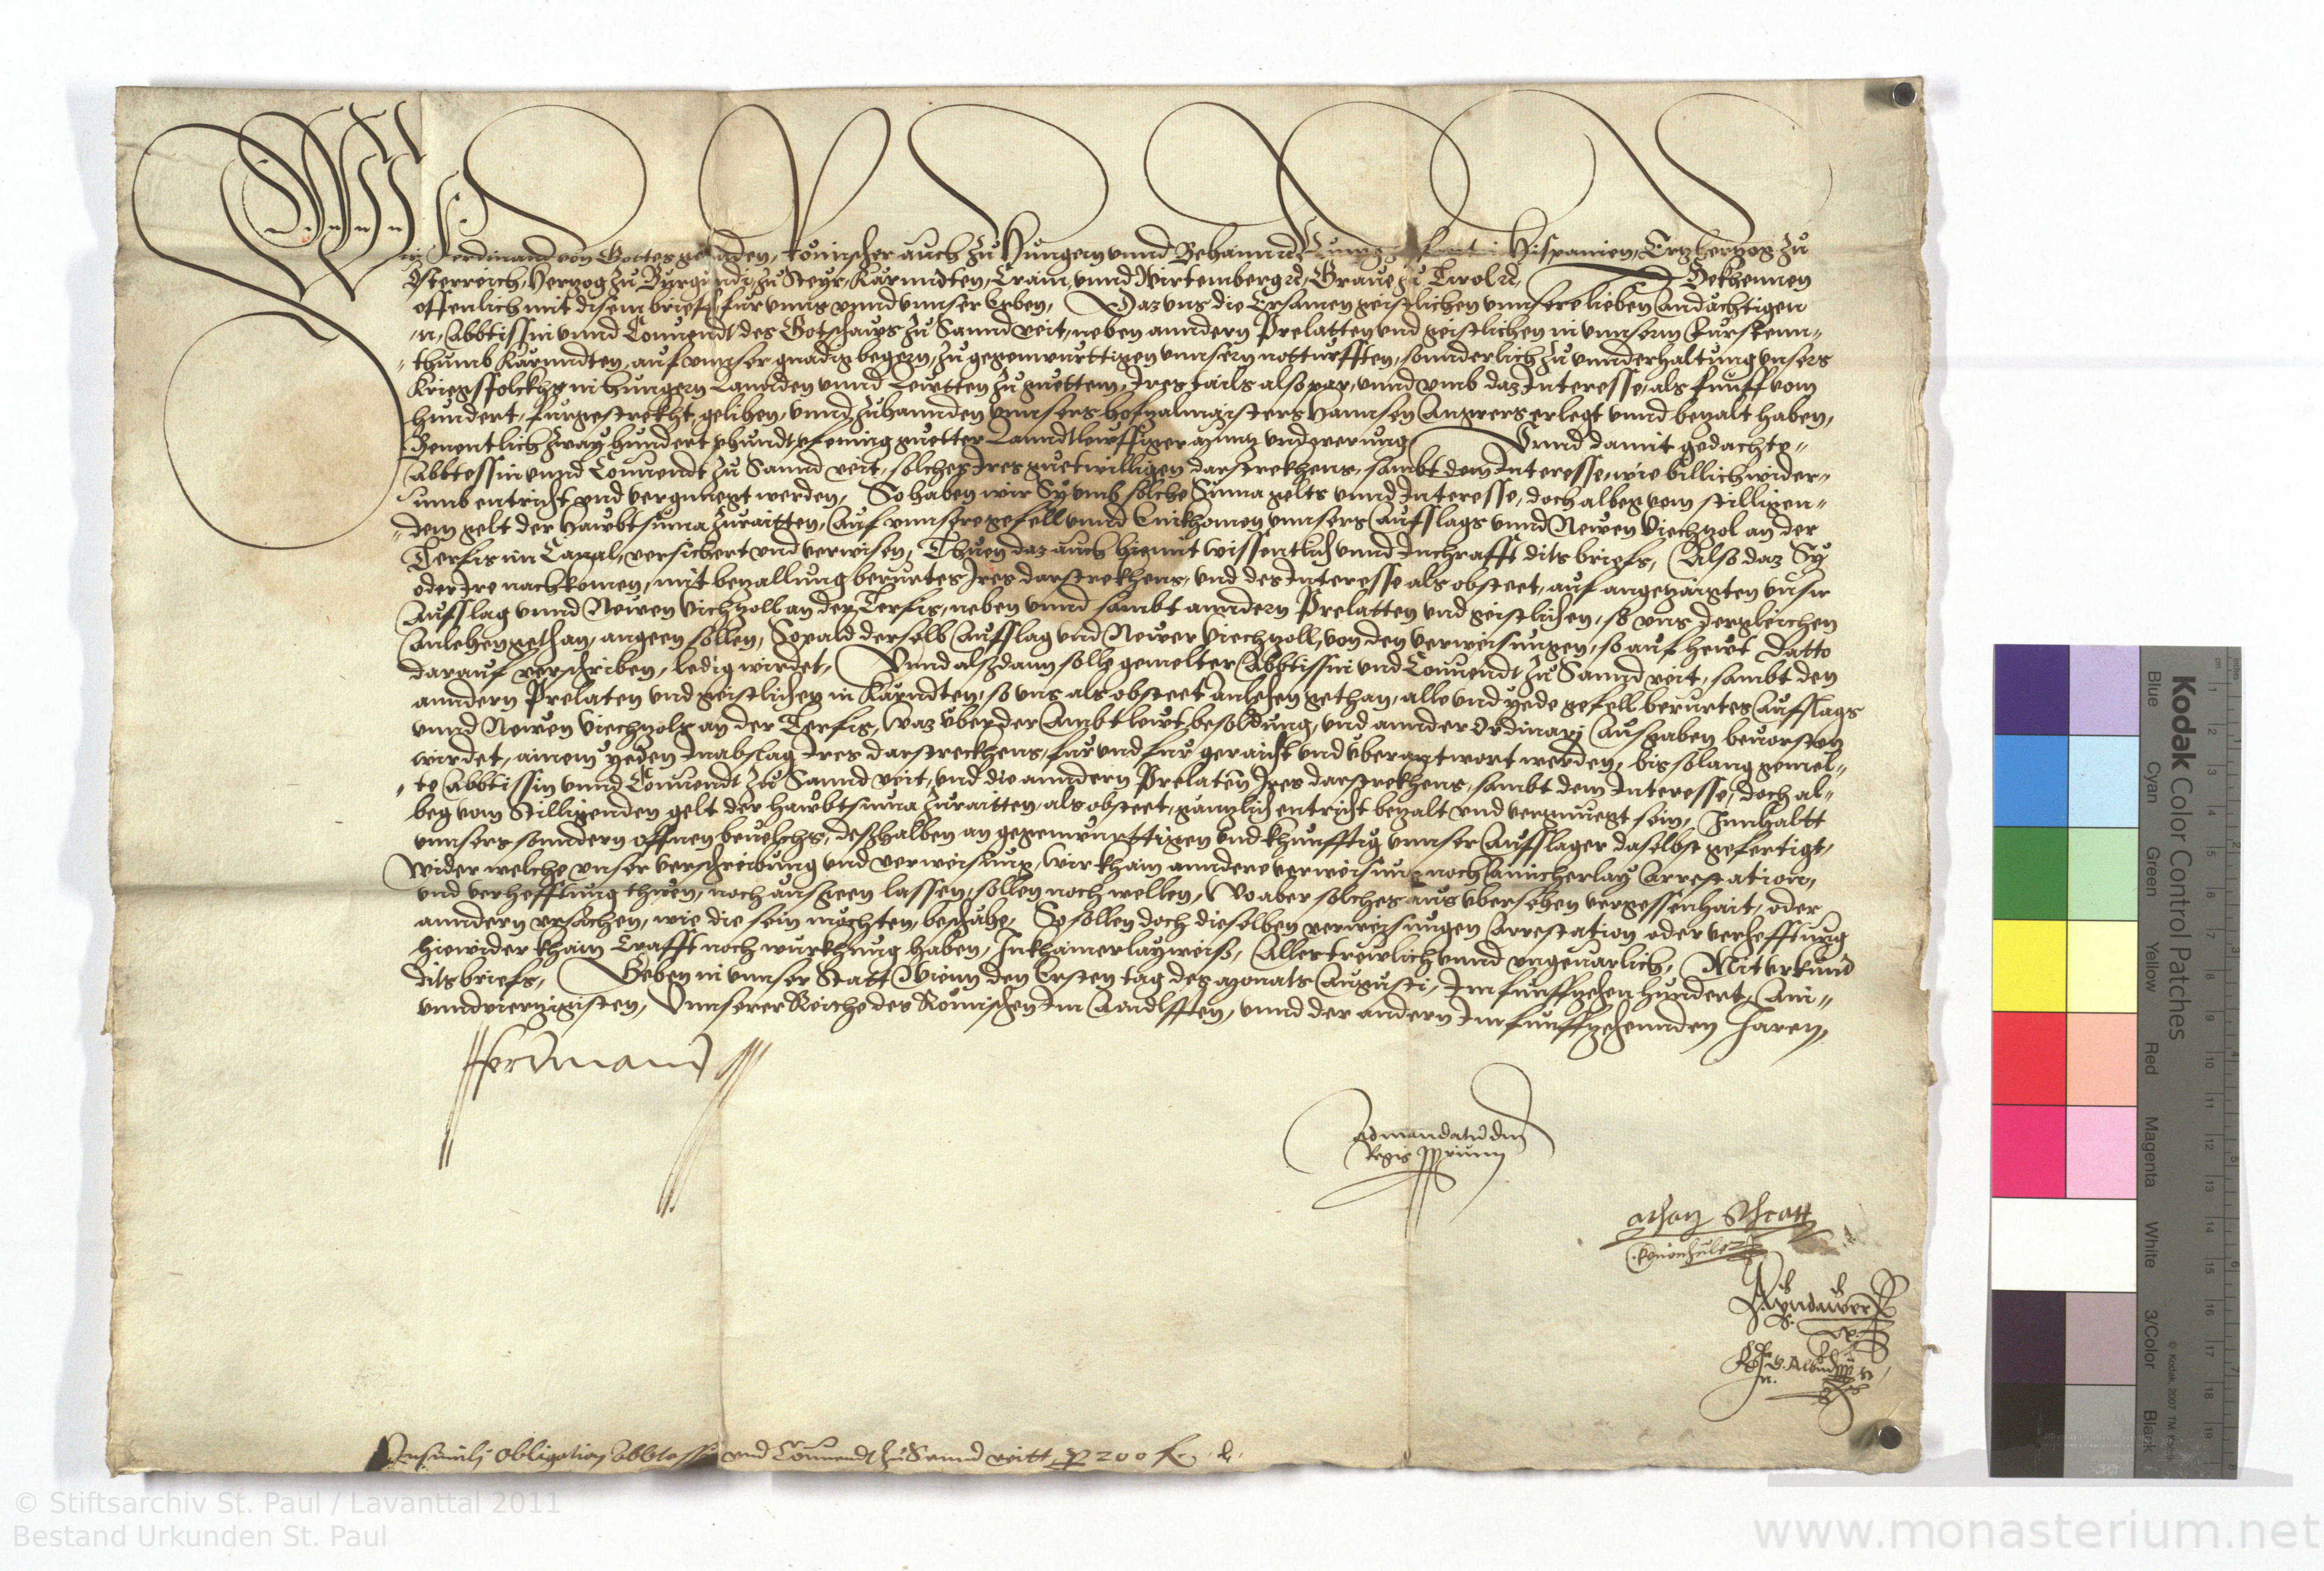 Wir Ferdinand von Gottes gnaden, Römischer auch zu Hungern vnnd Behaimb Hispanien, Ertzherzog zu
Österreich, Hertzog zu Burgundi, zu Steyr, Kärnndten, Crain, vnnd Wirtemberg etc, Graue zu Tirol etc, Bekhennen
offenlich mit disem brief für vnns vnnd vnnser Erben, Daz vns die Ersamen geistlichen vnnsere lieben Andächtigen
n, Abbtissin vnnd Conuendt des Gotshauss zu Sannd veit, neben anndern Prelatten vnd geistlichen in vnnserm Fürstenn-
-thumb Kärnndten, auf vnnser gnädig begern, zu gegenwurttigen vnnsern notturfften, sonnderlich zu vnnderhaltung vnsers
Kriegsfolckhs in hungern Lannden vnnd Leuten zu guettem, Ires tails also par, vnnd vmb daz Interesse, als funff vom
hundert, furgestrekht, geliben, vnnd zuhannden vnnsers hofzalmaisters Hannsen Angerers erlegt vnnd bezalt haben,
Benentlich zway hundert phundt pfening guetter Lanndtleuffiger munz vnd werung, Vnnd damit gedachte-
Abbtessin vnnd Conuendt zu Sannd veit, solches Ires guetwilligen darstrekhens, sambt dem Interesse, wie billich wider-
umb entricht vnd vergnuegt werden, So haben wir Sy vmb solche Suma gelts vnnd Interesse, doch albeg vom stilligen-
-dem gelt der Haubtsuma zuraitten, Auf vnnsere gefell vnnd Einkhomen vnnsers Aufslags vnnd Newen Viechzol an der
Terfis im Canal, versichert vnd verwisen, Thuen daz auch hiemit wissentlich vnnd In chrafft dits briefs, Also daz Sy
oder Ire nachkomen, mit bezallung berurtes Ires darstrekhens, vnd des Interesse als obsteet, auf angezaigten vnsern
Aufslag vnnd Newen Viechzoll an der Terfis, neben vnnd sambt anndern Prelatten vnd geistlichen, so vns dergleichen
Anlehen gethan, angeen sollen, Sopald derselb Aufslag vnd Newer Viechzoll, von den verweisungen, so auf heut Datto
darauf verschriben, ledig wirdet, Vnnd alsdann solle gemelter Abbtissin vnd Conuendt zu Sannd veit, sambt den
anndern Prelaten vnd geistlichen in Kärndten, so vns als obsteet Anlehen gethan, alle vnd yede gefell berurtes Aufslags
vnnd Newen Viechzols an der Terfis, waz uber der Ambtleut besoldung, vnd annder Ordinarj Ausgaben beuorsteen
wirdet, ainem yeden In abslag Ires darstreckhens, fur vnd fur geraicht vnd uberantwort werden, bis solang gemel-
-te Abbtissin vnnd Conuendt zu Sannd veit, vnd die anndern Prelaten Ires darstrekhens, sambt dem Interesse, doch al-
beg vom Stilligenden gelt der haubtsuma zuraitten, als obsteet, gänzlich entricht bezalt vnd vergnuegt sein, Innhaltt
vnnsers sonndern offnen beuelchs, deßhalben an gegenwurttigen vnd khunfftig vnnser Aufslager daselbst gefertigt,
Wider welche vnser verschreibung vnd verweisung, wir khain anndere verweisung noch Ainicherlay Arrestation,
vnd verhefftung thuen, noch ausgeen lassen, sollen noch wellen, Wo aber solches aus vbersehen vergessenhait, oder
anndern vrsachen, wie die sein mochten, beschähe, So sollen doch dieselben verweisungen Arrestation oder verhefftung
hiewider khain Crafft noch wurkhung haben, In khainerlay weiß, Alles treulich vnnd vngeuarlich, Mit vrkund
dits briefs, Geben in vnnser Statt Wienn den Ersten tag des monats Augusti, Im funffzehenhundert, Ain-
vnnduierzigisten, Vnnserer Reiche des Römischen Im Aindlfften, vnnd der andern Im funffzehennden Jaren,
Ferdinand
Ad mandatu dnj
Regis pprium
Schratt
In simili obligation Abbtessin vnd Conuendt zu Sannd veitt, p 200 £. d.
Kodak Color Control Patches
Blue Cyan Green Yellow Red Magenta White 3/Color Black
© Kodak, 2007 TM: Kodak
cm 1 2 3 4 5 6 7 8 9 10 11 12 13 14 15 16 17 18 19
inches 1 2 3 4 5 6 7 8
© Stiftsarchiv St. Paul / Lavanttal 2011
Bestand Urkunden St. Paul
www.monasterium.net